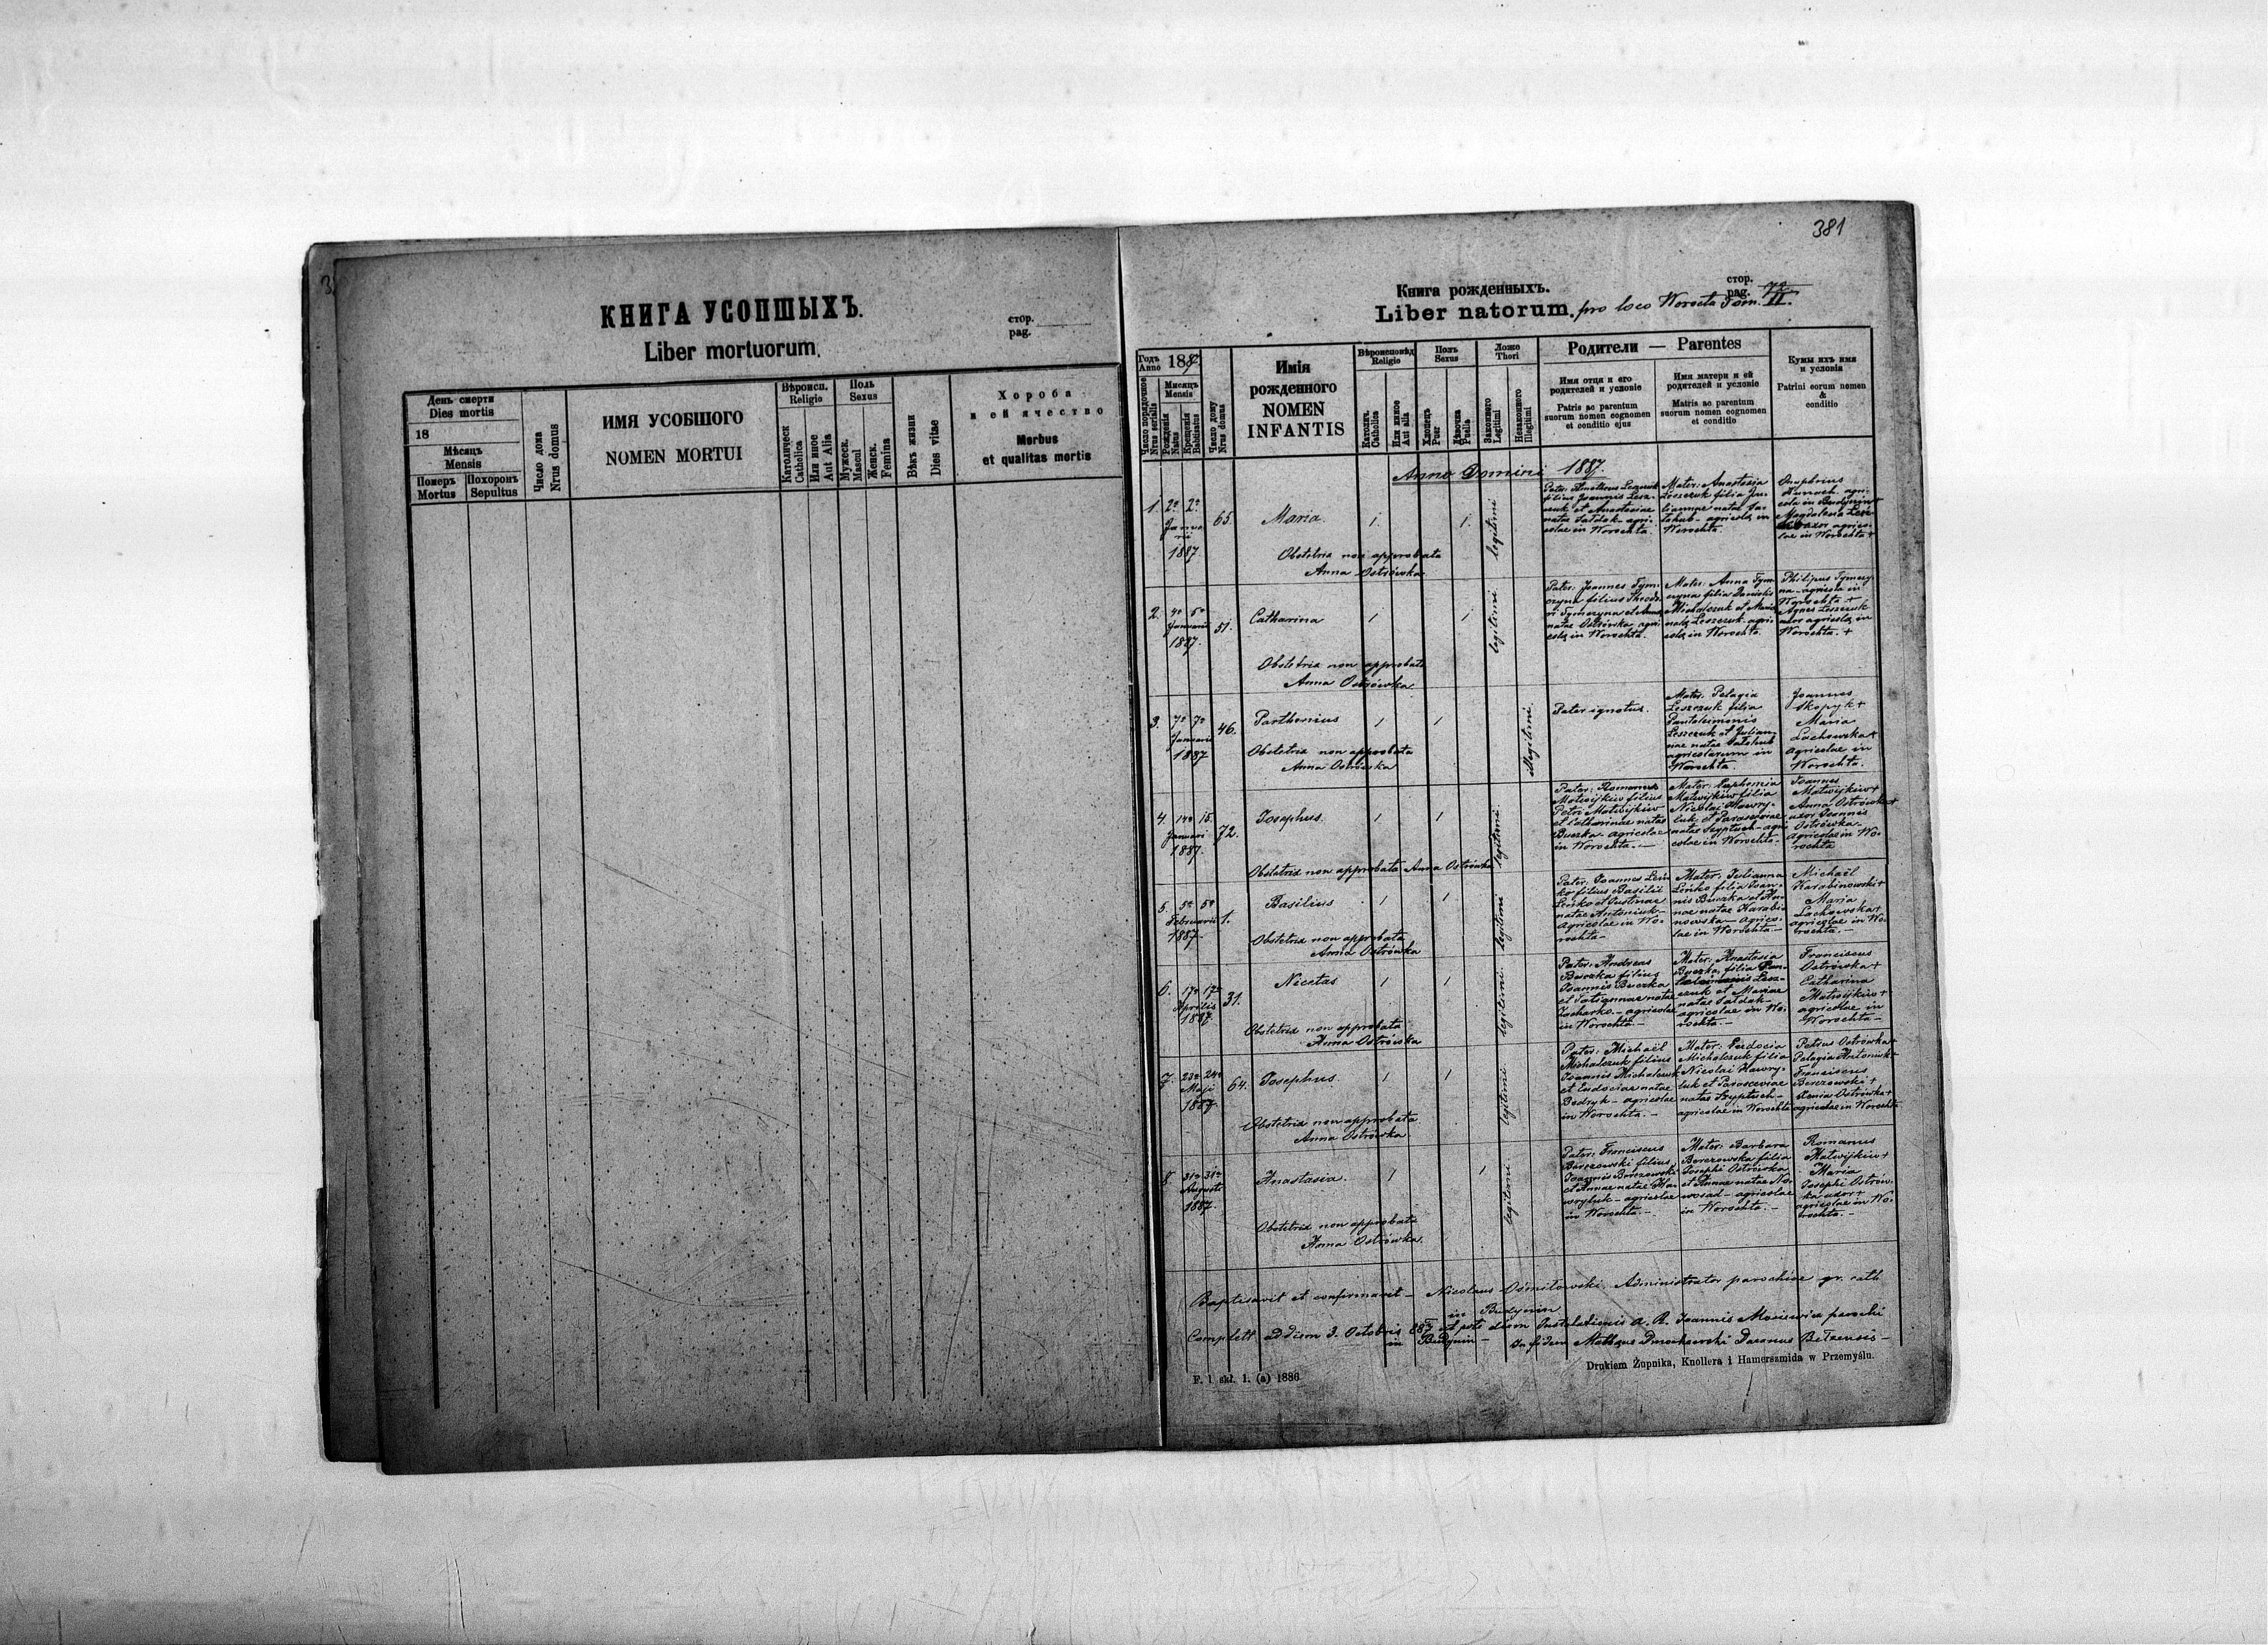 КНИГА УСОПШЫХЪ.
стор.
pag.
Liber mortuorum.
День смерти
Dies mortis
18
Мѣсяць
Mensis
Померъ
Mortus
Похоронъ
Sepultus
Число дома
Nrus domus
ИМЯ УСОБШОГО
NOMEN MORTUI
Вѣроисп.
Religio
Католическ
Catholica
Или иное
Aut Alia
Полъ
Sexus
Мужеск.
Mascul
Женск.
Femina
Вѣкъ жизни
Dies vitae
Хороба
и ей ячество
Morbus
et qualitas mortis
381
Книга рожденныхъ.
стор.
pag. 72
Liber natorum. pro loco Worochta Tom. II.
Годъ
Anno 1887
Число порядочное
Nrus serialis
Мѣсяць
Mensis
Рожденія
Natus
Крещенія
Babtisatus
Число дому
Nrus domus
Имія
рожденного
NOMEN
INFANTIS
Вѣроисповѣд
Religio
Католич.
Catholica
Или инное
Aut alia
Полъ
Sexus
Хлопець
Puer
Дѣвочка
Puella
Ложе
Thori
Законного
Legitimi
Незаконного
Illegitimi
Родители — Parentes
Имя отця и его
родителей и условіе
Patris ac parentum
suorum nomen cognomen
et conditio ejus
Имя матери и ей
родителей и условіе
Matris ac parentum
suorum nomen cognomen
et conditio
Кумы ихъ имя
и условія
Patrini eorum nomen
&
conditio
Anno Domini 1887.
1. 2a 2a
Januarii
1887
65.
Maria.
1. 1.
legitimi
Obstetrix non approbata
Anna Ostrówka
filius Joannis Leszczuk et Anastasiae
natae Saldak agricolae in Worochta.
Mater: Anastasia
Leszczuk filia
agricolae in
Worochta.
Onuphrius
agricola in Budynin +
Magdalena
uxor agricolae in Worochta +
2. 4a 5a
Januarii
1887.
51.
Catharina
1 1
legitimi
Obstetrix non approbata
Anna Ostrówka.
Pater: Joannes Tymczyna filius Theodori Tymczyna et Annae
natae Ostrówka agricolae in Worochta.
Mater: Anna Tymczyna filia Danielis
Michalczuk et Mariae
natae Leszczuk agricolae in Worochta.
Philipus Tymczyna agricola in
Worochta +
Agnes Leszczuk
uxor agricolae in
Worochta. +
3. 7a 7a
Januarii
1887
46.
Parthenius
1 1
illegitimi.
Obstetrix non approbata
Anna Ostrówka
Pater ignotus.
Mater: Pelagia
Leszczuk filia
Pantaleimonis
Leszczuk et Julianae natae
agricolarum in
Worochta.
Joannes
Skopyk +
Maria
Lachowska +
agricolae in
Worochta.
4. 14a 15.
Januarii
1887.
72.
Josephus.
1 1
legitimi.
Obstetrix non approbata Anna Ostrówka
Pater: Romanus
Matwijkiw filius
Petri Matwijkiw
et Catharinae natae
Buczka agricolae
in Worochta. —
Mater: Euphemia
Matwijkiw filia
Nicolai Hawryluk et Parasceviae
natae Szyptuch agricolae in Worochta —
Joannes
Matwijkiw +
Anna Ostrówka +
uxor Joannis
Ostrówka
agricolae in Worochta
5. 5a 5a
Februarii
1887 —
1.
Basilius
1 1
legitimi
Obstetrix non approbata
Anna Ostrówka
Pater: Joannes Leńko filius Basilii
Leńko et Justinae
natae Antoniuk
agricolae in Worochta —
Mater: Julianna
Leńko filia Joannis Buczka et Annae natae Karabinowska — agricolae in Worochta —
Michaël
Karabinowski +
Maria
Lachowska +
agricolae in Worochta. —
6. 17a 17a
Aprilis
1887
31.
Nicetas
1 1
legitimi
Obstetrix non approbata
Anna Ostrówka
Pater: Andreas
Buczka filius
Joannis Buczka
et Tatiannae natae
Zacharko — agricolae
in Worochta —
Mater: Anastasia
Buczka, filia Pantaleimonis Leszczuk et Mariae
natae Saldak —
agricolae in Worochta. —
Franciscus
Ostrówka +
Catharina
Matwijkiw +
agricolae in
Worochta —
7. 23a 24a
Maji
1887.
64.
Josephus.
1 1
legitimi
Obstetrix non approbata
Anna Ostrówka
Pater: Michaël
Michalczuk filius
Joannis Michalczuk
et Eudociae natae
Bedryk — agricolae
in Worochta. —
Mater: Eudocia
Michalczuk filia
Nicolai Hawryluk et Parasceviae
natae Szyptuch —
agricolae in Worochta
Petrus Ostrówka +
Pelagia Antoniuk +
Franciscus
Berezowski +
Xenia Ostrówka +
agricolae in Worochta
8 31a 31a
Augusti
1887.
Anastasia.
1 1
legitimi
Obstetrix non approbata
Anna Ostrówka.
Pater: Franciscus
Berezowski filius
Joannis Berezowski
et Annae natae Hawryluk — agricolae
in Worochta. —
Mater: Barbara
Berezowska filia
Josephi Ostrówka
et Annae natae Nowosad — agricolae
in Worochta. —
Romanus
Matwijkiw +
Maria
Josephi Ostrówka uxor +
agricolae in Worochta. —
Baptisavit et confirmavit — Nicolaus Ośmiłowski Administrator parochiae gr. cath
in Budynin
Complett. ad diem 3. Octobris 887 diem Instalationis A. R. Joannis parochi
in Budynin — In fidem Decanus Bełzensis —
F. 1 skł. 1. (a) 1886
Drukiem Żupnika, Knollera i Hamerszmida w Przemyślu.